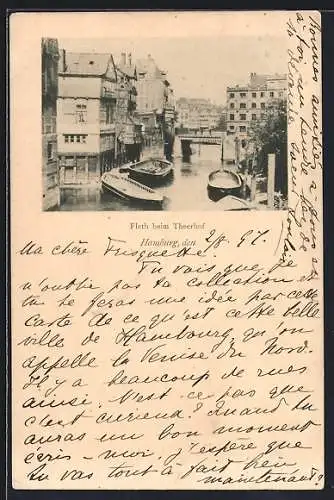 Fleth beim Theerhof
Hamburg, den 2/8. 97.
Ma chère Frisquette.
Tu vois que je
n'oublie pas ta collection et
tu te feras une idée par cette
carte de ce qu'est cette belle
ville de Hambourg, qu'on
appelle la Venise du Nord.
Il y a beaucoup de rues
ainsi. N'est ce pas que
c'est curieux? Quand tu
auras un bon moment
écris-moi. J'espère que
tu vas tout à fait bien
maintenant?
Bonnes amitiés à tous et
à toi un tendre
de ta